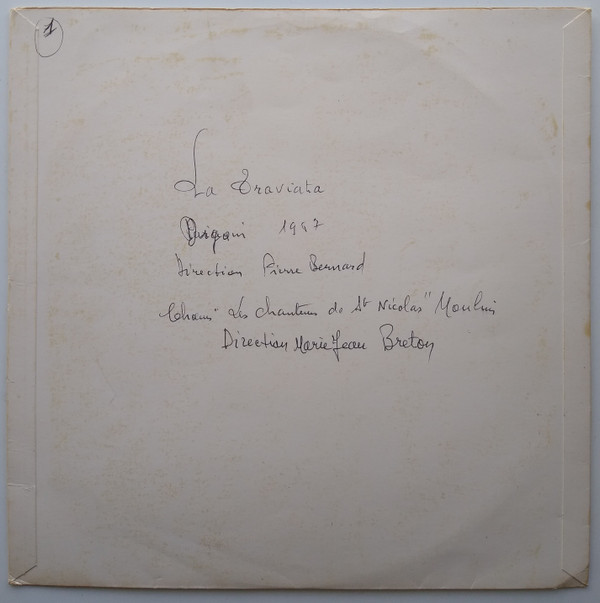 1
La Traviata
Direction Pierre Bernard
Les chanteurs de St Nicolas" Moulins
Direction Marie Jean Breton